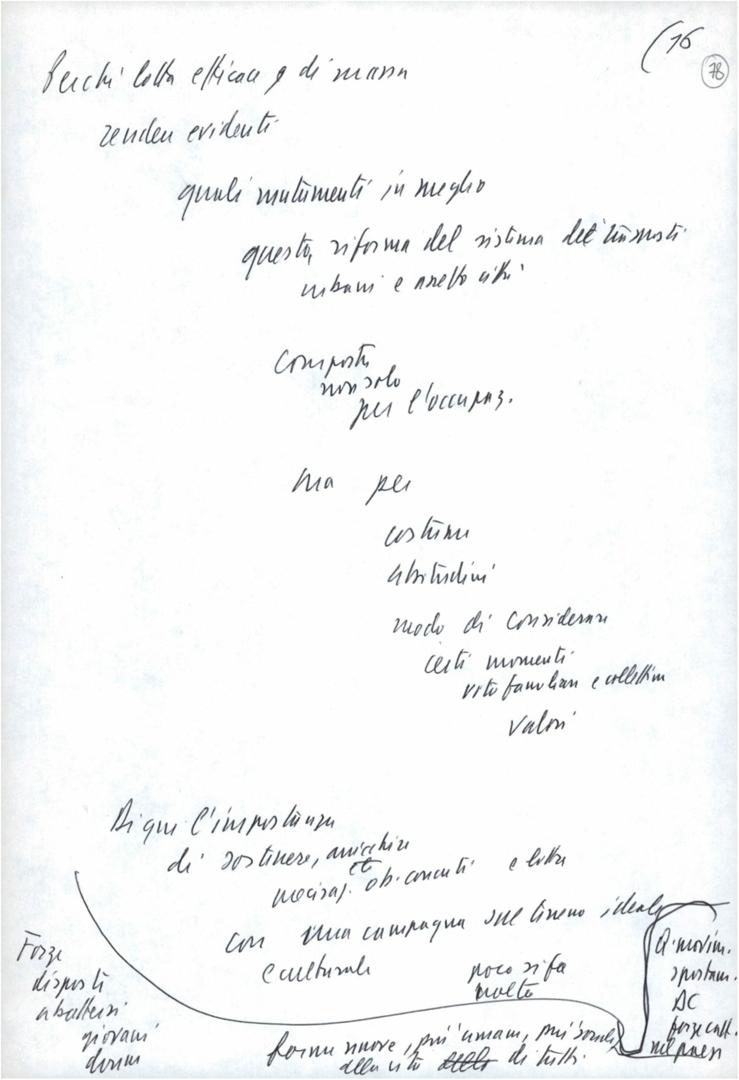 (16
78
Perché lotta efficace e di massa
renden evidenti
quali mutamenti in meglio
questa riforma del sistema dei trasporti
urbani e assetto città
comporta
non solo
per l'occupaz.
ma per
costumi
abitudini
modo di considerare
certi momenti
vita familiare e collettiva
valori
Di qui l'importanza
di sostenere, arricchire
ob. concreti e lotta
con una campagna sul terreno ideale
e culturale
poco si fa
molto
Forze
disposti
a battersi
giovani
donne
forme nuove, più umane, più sociali
della vita di tutti.
movim.
spostam.
AC
forze catt.
nel paese